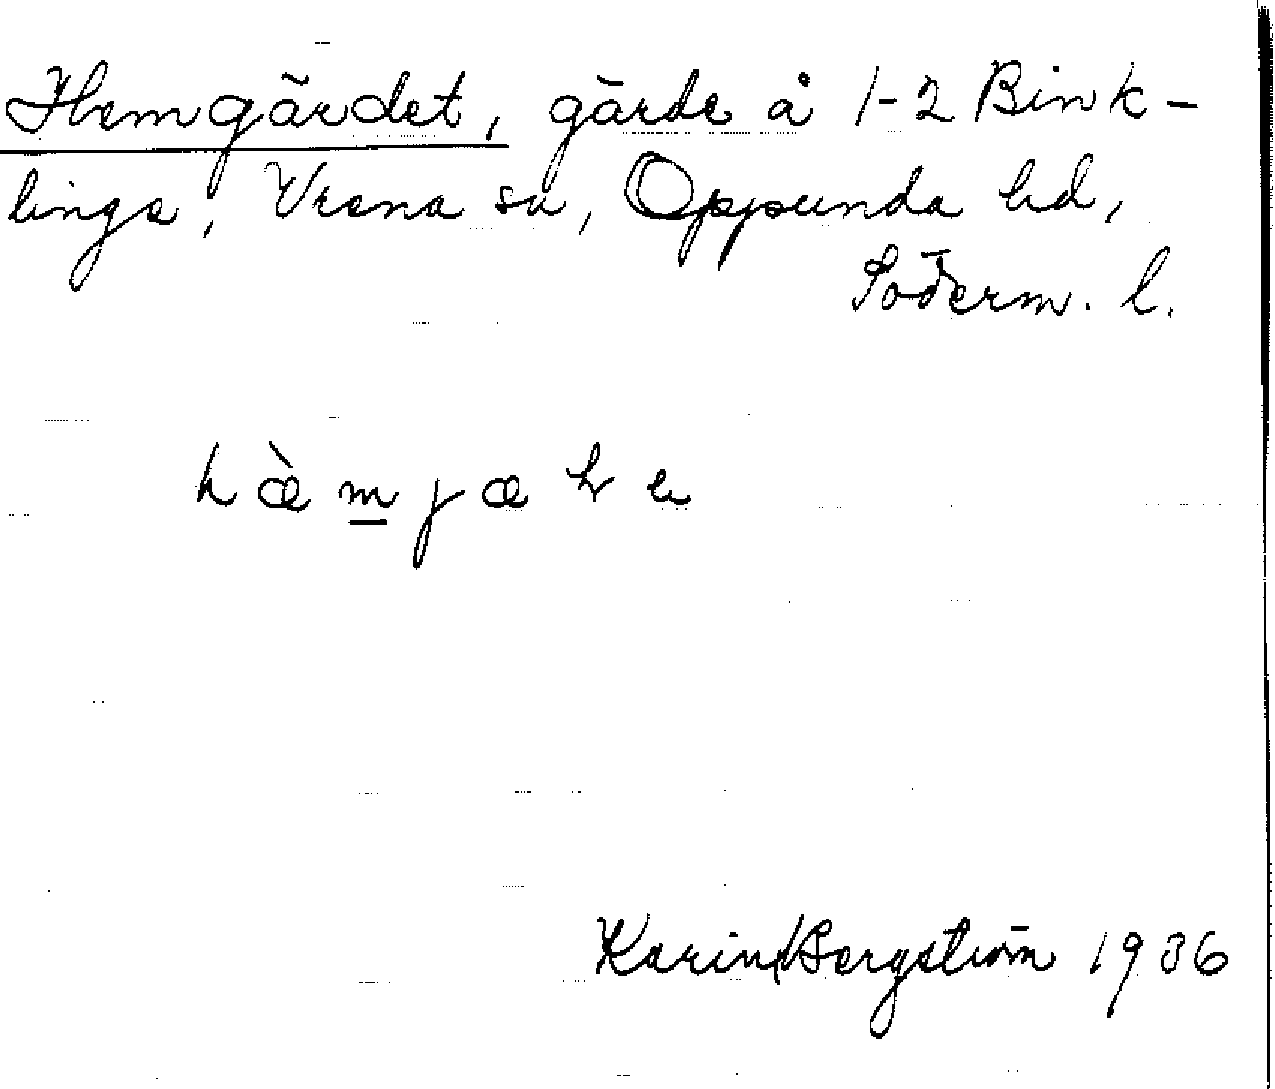 Hemgärdet, gärde å 1-2 Bink-
linge, Vrena sn, Oppunda hd,
Söderm. l.
hæ̀mjæ
Karin Bergström 1936